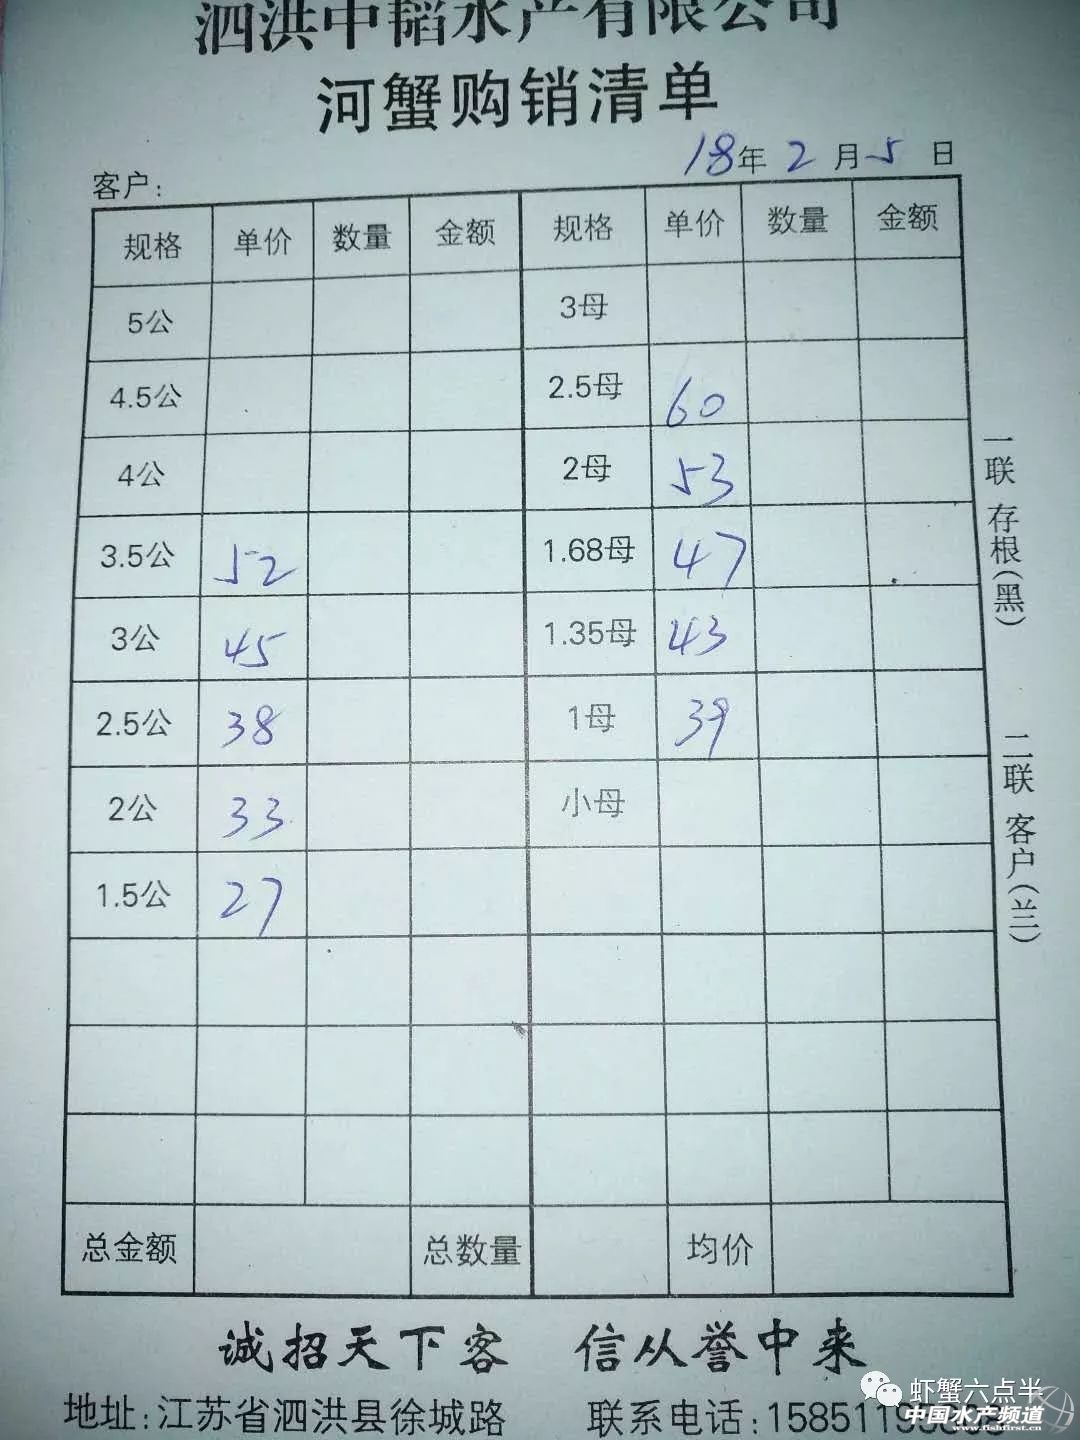 泗洪中韬水产有限公司
河蟹购销清单
18年 2 月 5 日
客户:
规格 单价 数量 金额 规格 单价 数量 金额
5公 3母
4.5公 2.5母 60
4公 2母 53
3.5公 52 1.68母 47
3公 45 1.35母 43
2.5公 38 1母 39
2公 33 小母
1.5公 27
总金额 总数量 均价
一联 存根(黑)
二联 客户(兰)
诚招天下客 信从誉中来
地址:江苏省泗洪县徐城路 联系电话:158511
虾蟹六点半
中国水产频道
www.fishfirst.cn